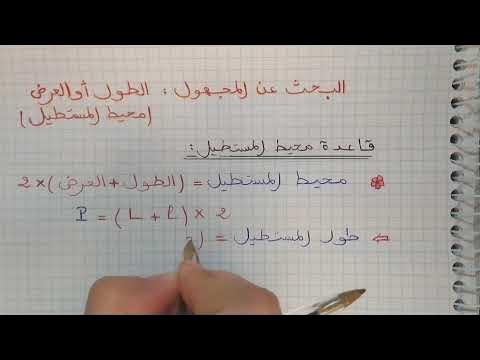 البحث عن المجهول : الطول أو العرض
(محيط المستطيل)
قاعدة محيط المستطيل:
محيط المستطيل = (الطول + العرض) × 2
P = (L + l) × 2
طول المستطيل =